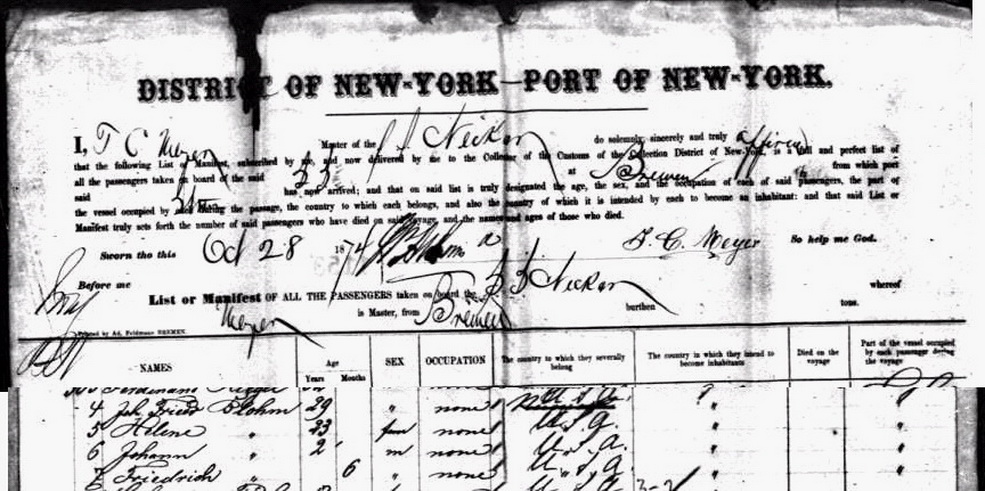 DISTRICT OF NEW-YORK—PORT OF NEW-YORK.
I, T C Meyer Master of the S. S. Neckar do solemnly, sincerely and truly affirm
that the following List or Manifest, subscribed by me, and now delivered by me to the Collector of the Customs of the Collection District of New-York, is a full and perfect list of
all the passengers taken on board of the said S S at Bremen from which port
said has now arrived; and that on said list is truly designated the age, the sex, and the occupation of each of said passengers, the part of
the vessel occupied by each during the passage, the country to which each belongs, and also the country of which it is intended by each to become an inhabitant: and that said List or
Manifest truly sets forth the number of said passengers who have died on said voyage, and the names and ages of those who died.
Sworn tho this Oct 28 1874 T. C. Meyer So help me God.
Before me
List or Manifest OF ALL THE PASSENGERS taken on board the S S Neckar whereof
Meyer is Master, from Bremen burthen tons.
Printed by Ad. Feldmann BREMEN.
NAMES Age Years Months SEX OCCUPATION The country to which they severally belong The country in which they intend to become inhabitants Died on the voyage Part of the vessel occupied by each passenger during the voyage
Ferdinand
4 Joh. Fried. Blohm 29 " none U.S.A. " "
5 Helene " 23 fm none U.S.A. " "
6 Johann " 2 m none U.S.A. " "
7 Friedrich " 6 " none U.S.A. " "